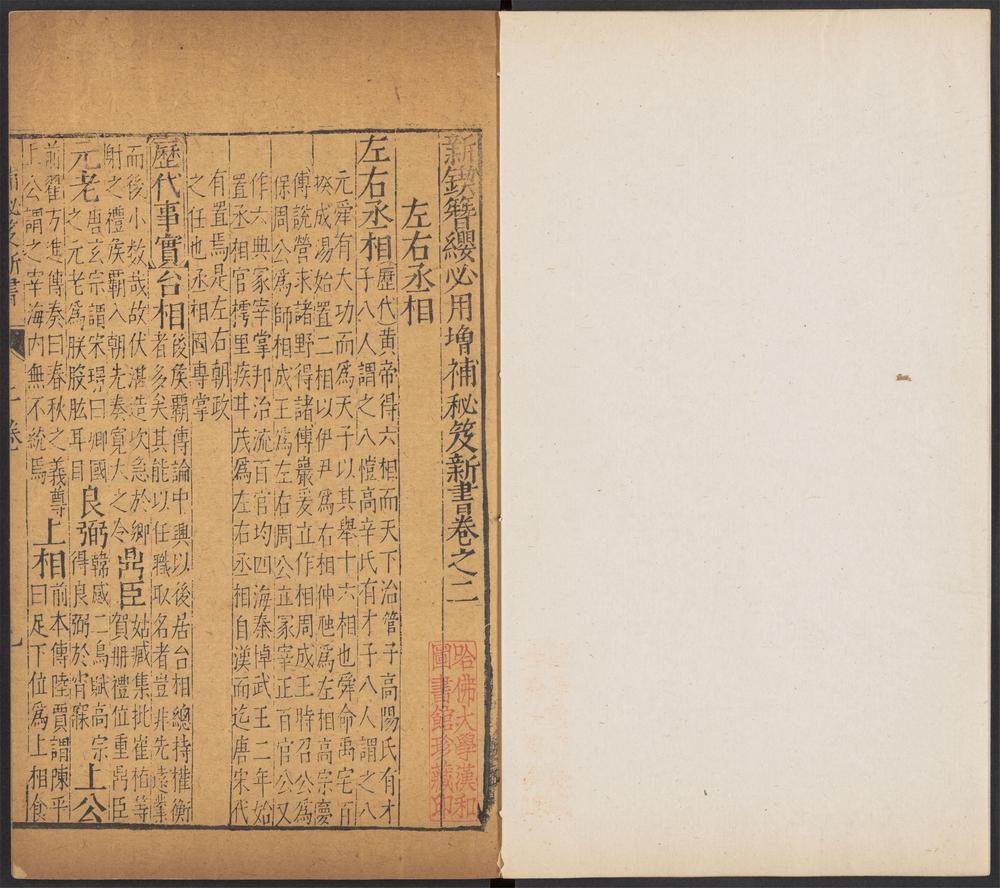 新鍥簪纓必用增補秘笈新書卷之二
哈佛大學漢和
圖書館珍藏印
左右丞相
左右丞相 歷代 黃帝得六相而天下治管子高陽氏有才
子八人謂之八愷高辛氏有才子八人謂之八
元舜有大功而爲天子以其舉十六相也舜命禹宅百
揆成湯始置二相以伊尹爲右相仲虺爲左相高宗夢
傅說營求諸野得諸傅巖爰立作相周成王時召公爲
保周公爲師相成王爲左右周公立冢宰正百官公又
作六典冢宰掌邦治流百官均四海秦悼武王二年始
置丞相官樗里疾甘茂爲左右丞相自漢而迄唐宋代
有置焉是左右朝政
之任也丞相國專掌
歷代事實 台相 後侯覇傳論中興以後居台相總持權衡
者多矣其能以任職取名者豈非先遠業
而後小数哉故伏湛造次急於鄉
射之禮侯覇入朝先奏寬大之令
鼎臣 姑臧集批崔植等
賀冊禮位重鼎臣
元老 唐玄宗謂宋璟曰卿國
之元老爲朕股肱耳目
良弼 韓感二鳥賦高宗
得良弼於宵寐
上公
前翟方進傳奏曰春秋之義尊
上公謂之宰海內無不統焉
上相 前本傳陸賈謂陳平
曰足下位爲上相食